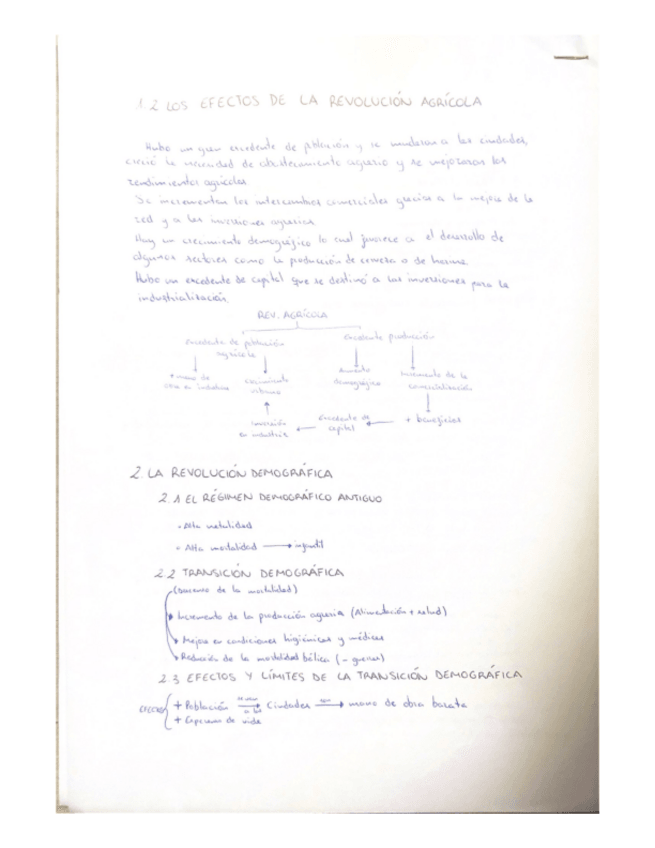 1.2 LOS EFECTOS DE LA REVOLUCIÓN AGRÍCOLA
Hubo un gran excedente de población y se mudaron a las ciudades,
creció la necesidad de abastecimiento agrario y se mejoraron los
rendimientos agrícolas
Se incrementan los intercambios comerciales gracias a la mejora de la
red y a las inversiones agrarias
Hay un crecimiento demográfico lo cual favorece a el desarrollo de
algunos sectores como la producción de cerveza o de harina
Hubo un excedente de capital que se destinó a las inversiones para la
industrialización
REV. AGRÍCOLA
excedente de población agrícola
excedente producción
+ mano de obra en industria
crecimiento urbano
aumento demográfico
incremento de la comercialización
inversión en industria
excedente de capital
+ beneficios
2. LA REVOLUCIÓN DEMOGRÁFICA
2.1 EL RÉGIMEN DEMOGRÁFICO ANTIGUO
- Alta natalidad
- Alta mortalidad → infantil
2.2 TRANSICIÓN DEMOGRÁFICA
(Descenso de la mortalidad)
Incremento de la producción agraria (Alimentación + salud)
Mejora en condiciones higiénicas y médicas
Reducción de la mortalidad bélica (- guerras)
2.3 EFECTOS Y LÍMITES DE LA TRANSICIÓN DEMOGRÁFICA
EFECTOS + Población → a las Ciudades → mano de obra barata
+ Esperanza de vida